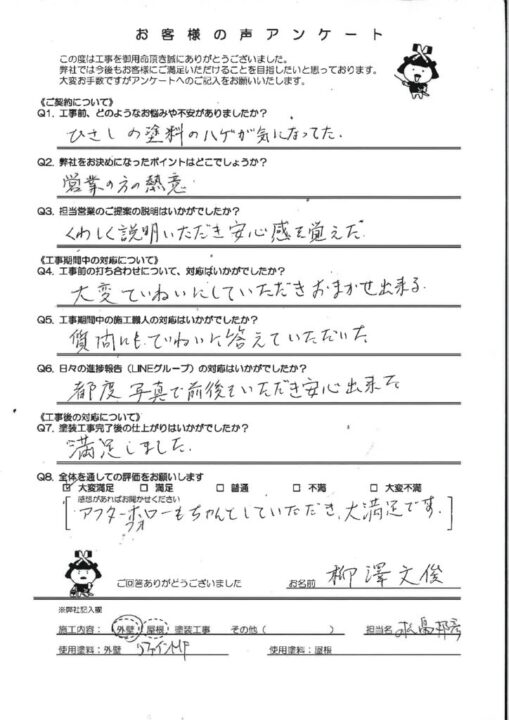 お客様の声アンケート
この度は工事を御用命頂き誠にありがとうございました。
弊社では今後もお客様にご満足いただけることを目指したいと思っております。
大変お手数ですがアンケートへのご記入をお願いいたします。
《ご契約について》
Q1. 工事前、どのようなお悩みや不安がありましたか?
ひさしの塗料のハゲが気になってた.
Q2. 弊社をお決めになったポイントはどこでしょうか?
営業の方の熱意
Q3. 担当営業のご提案の説明はいかがでしたか?
くわしく説明いただき安心感を覚えた
《工事期間中の対応について》
Q4. 工事前の打ち合わせについて、対応はいかがでしたか?
大変ていねいにしていただきおまかせ出来る.
Q5. 工事期間中の施工職人の対応はいかがでしたか?
質問にもていねいに答えていただいた
Q6. 日々の進捗報告(LINEグループ)の対応はいかがでしたか?
都度写真で前後をいただき安心出来た
《工事後の対応について》
Q7. 塗装工事完了後の仕上がりはいかがでしたか?
満足しました.
Q8. 全体を通しての評価をお願いします
☑ 大変満足 □ 満足 □ 普通 □ 不満 □ 大変不満
感想があればお聞かせください
アフターフォローもちゃんとしていただき、大満足です.
ご回答ありがとうございました お名前 柳澤文俊
※弊社記入欄
施工内容: 外壁・屋根・塗装工事 その他( ) 担当名
使用塗料:外壁 使用塗料:屋根